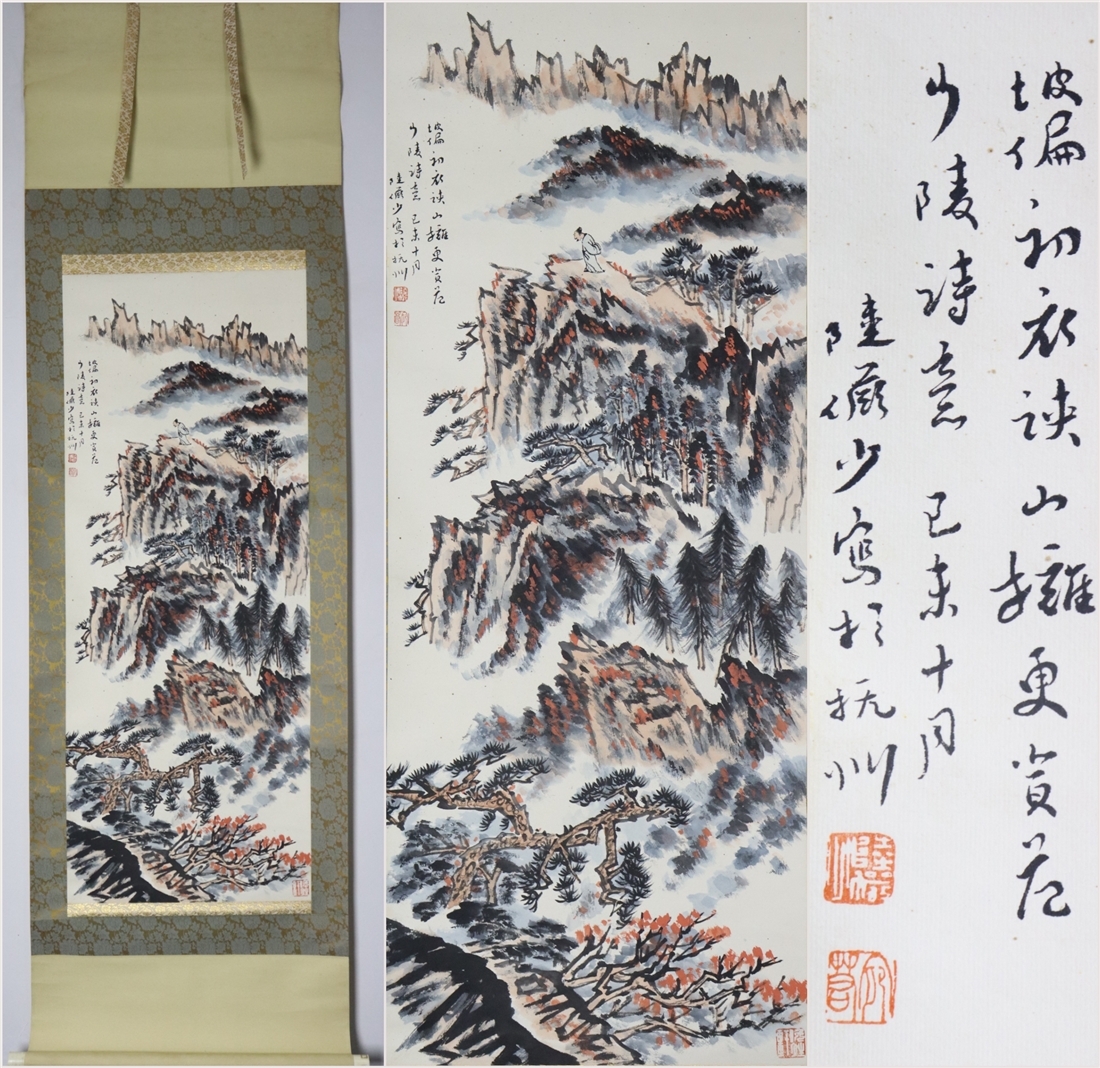 地偏初衣裌山擁更登危
少陵詩意 己未十月
陸儼少寫於杭州